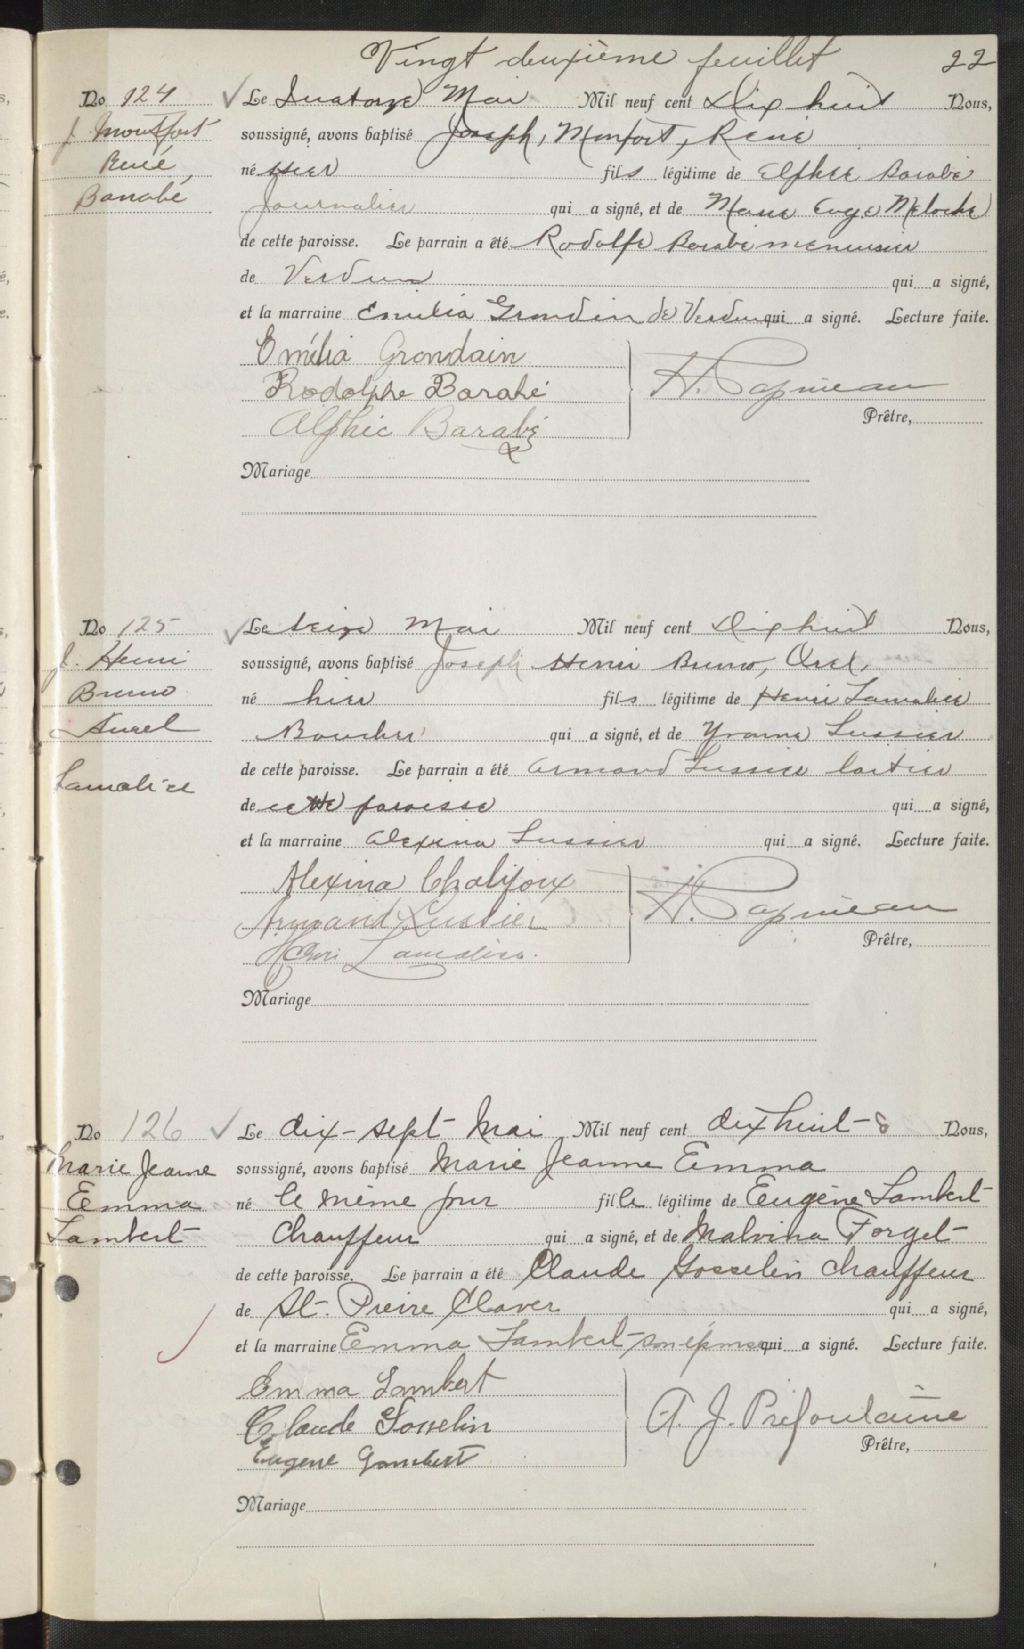 Vingt deuxième feuillet 22
No 124 Le Quatorze Mai Mil neuf cent Dix huit Nous,
J. Montfort soussigné, avons baptisé Joseph, Monfort, René
René, né Hier fils légitime de Elphée Barabé
Barrabé Journalier qui a signé, et de Marie Ange Meloche
de cette paroisse. Le parrain a été Rodolfe Barabé menuisier
de Verdun qui a signé,
et la marraine Emilia Grondin de Verdun qui a signé. Lecture faite.
Emélia Grondain
Rodolphe Barabé H. Papineau
Alphée Barabé Prêtre,
Mariage
No 125 Le seize Mai Mil neuf cent Dix huit Nous,
J. Henri soussigné, avons baptisé Joseph Henri Bruno,
Bruno né hier fils légitime de Henri Lamalice
Aurel Boucher qui a signé, et de Yvonne Lussier
Lamalice de cette paroisse. Le parrain a été Armand Lussier
de cette paroisse qui a signé,
et la marraine Alexina Lussier qui a signé. Lecture faite.
Alexina Chalifoux
Armand Lussier H. Papineau
Henri Lamalice. Prêtre,
Mariage
No 126 Le dix-sept Mai Mil neuf cent dix huit - 8 Nous,
Marie Jeanne soussigné, avons baptisé Marie Jeanne Emma
Emma né le même jour fille légitime de Eugène Lambert
Lambert Chauffeur qui a signé, et de Malvina Forget
de cette paroisse. Le parrain a été Claude Gosselin chauffeur
de St. Pierre Claver qui a signé,
et la marraine Emma Lambert son épouse qui a signé. Lecture faite.
Emma Lambert
Claude Gosselin A. J. Préfontaine
Eugene Lambert Prêtre,
Mariage